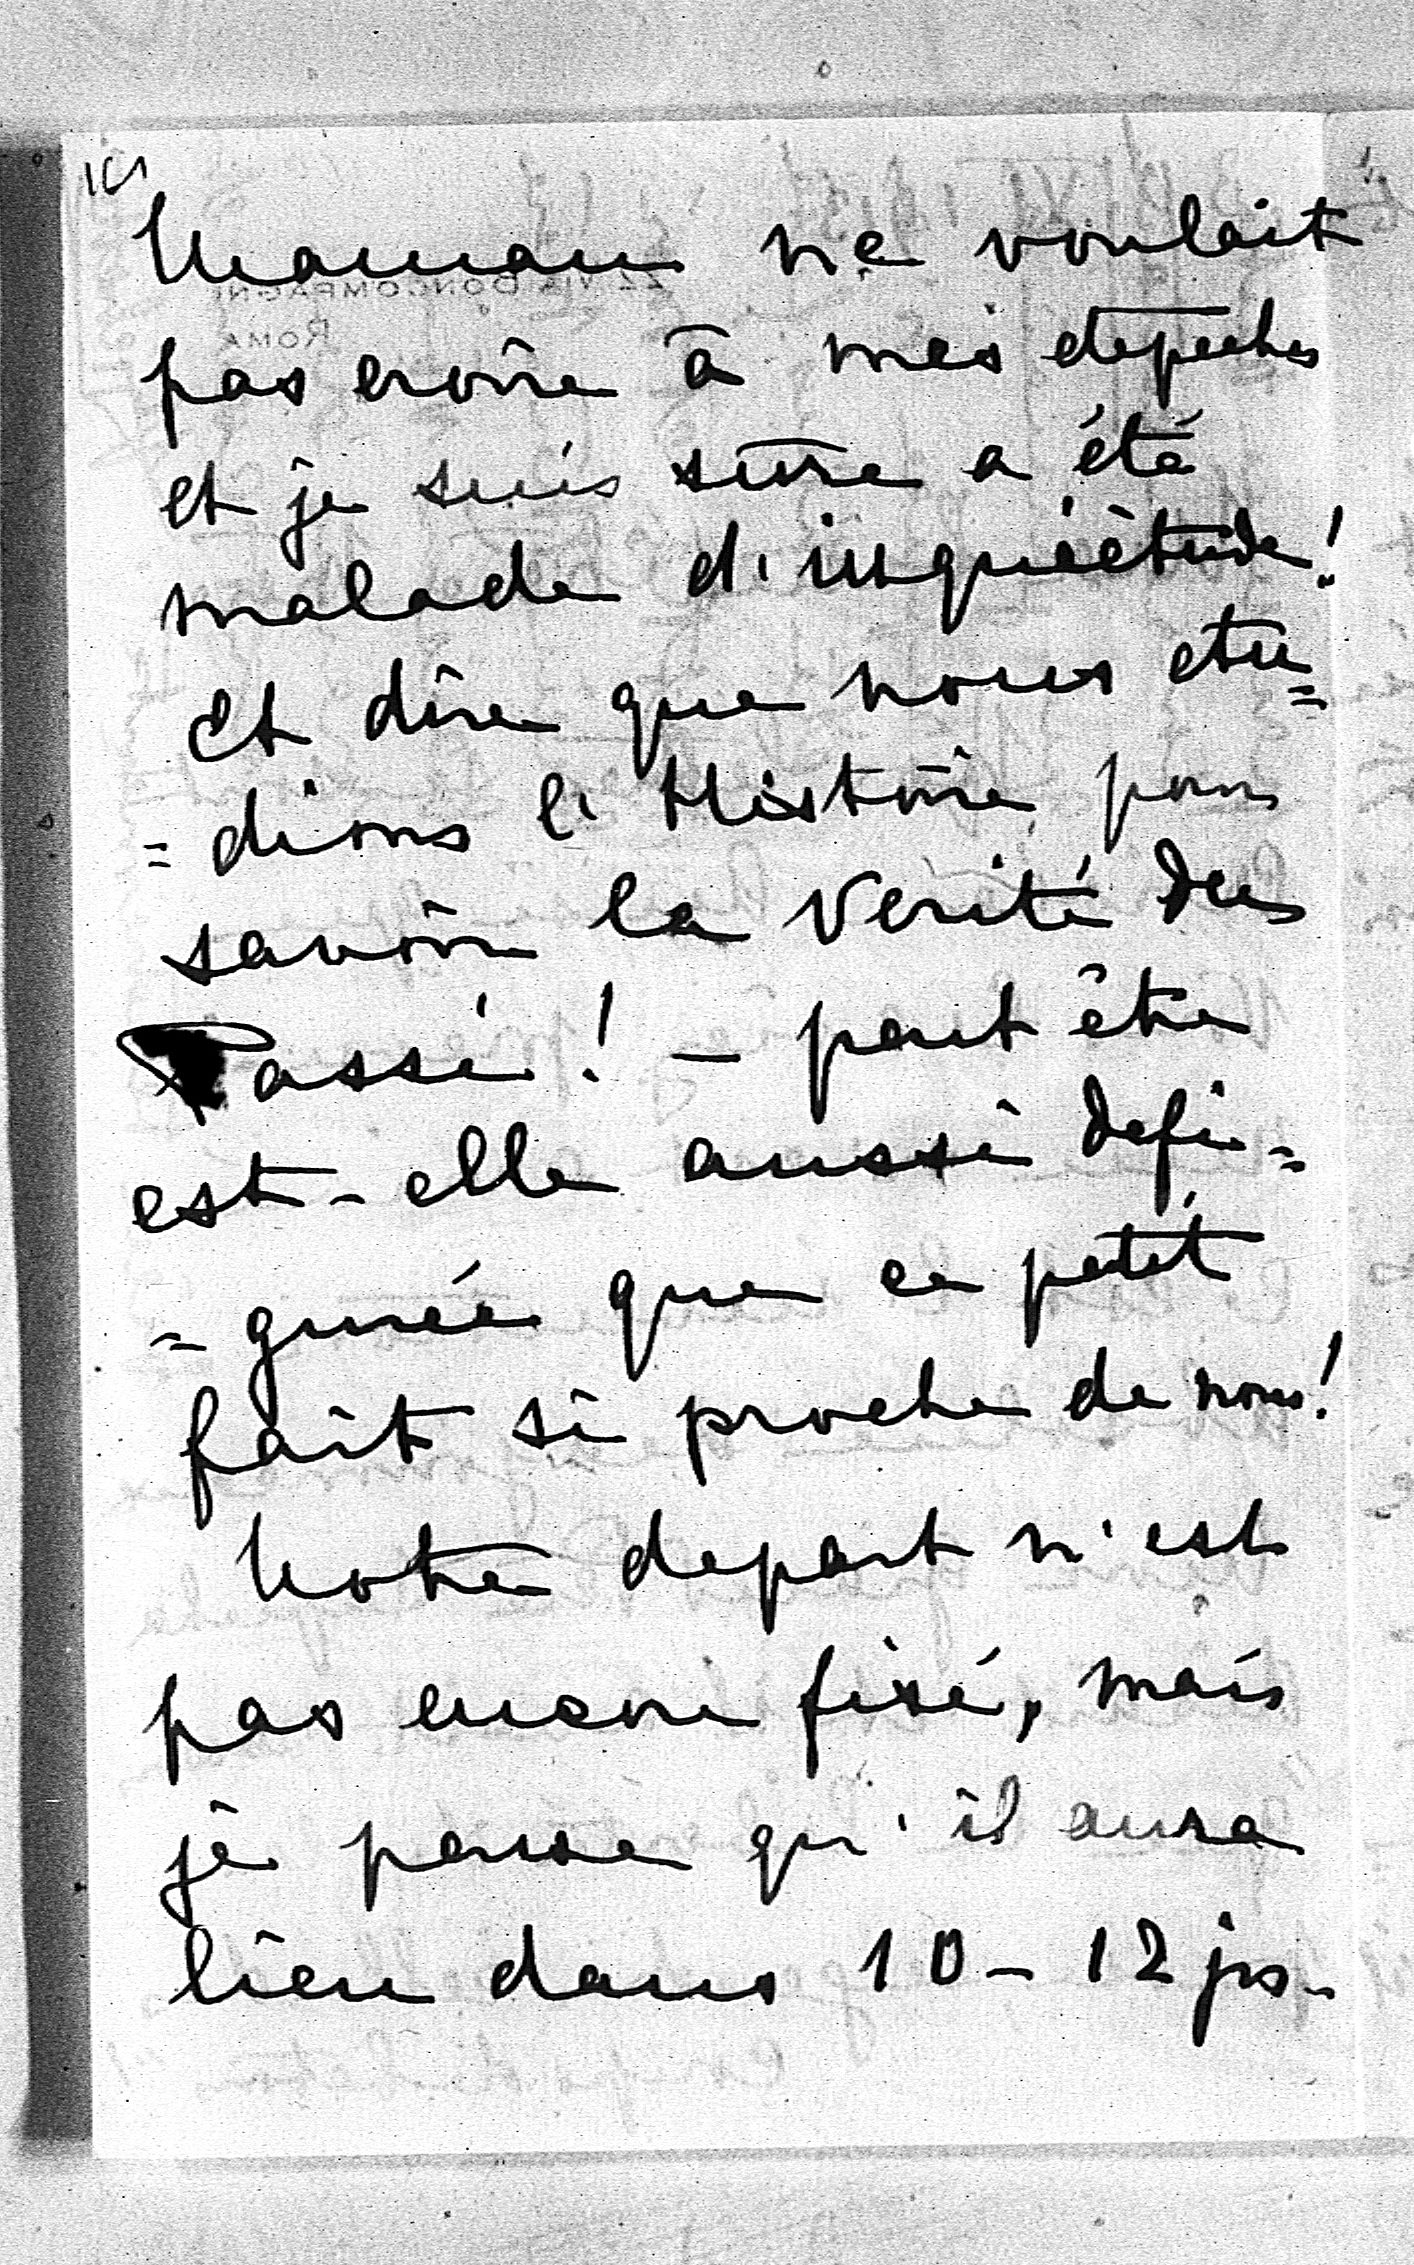 Maman ne voulait
pas croire à mes depeches
et je suis sûre a été
malade d'inquiètude!
Et dire que nous etu=
=dions l'Histoire pour
savoir la Verité du
Passé! – peut être
est-elle aussi defi=
=gurée que ce petit
fait si proche de nous!
Notre depart n'est
pas encore fixé, mais
je pense qu'il aura
lieu dans 10–12 jrs.